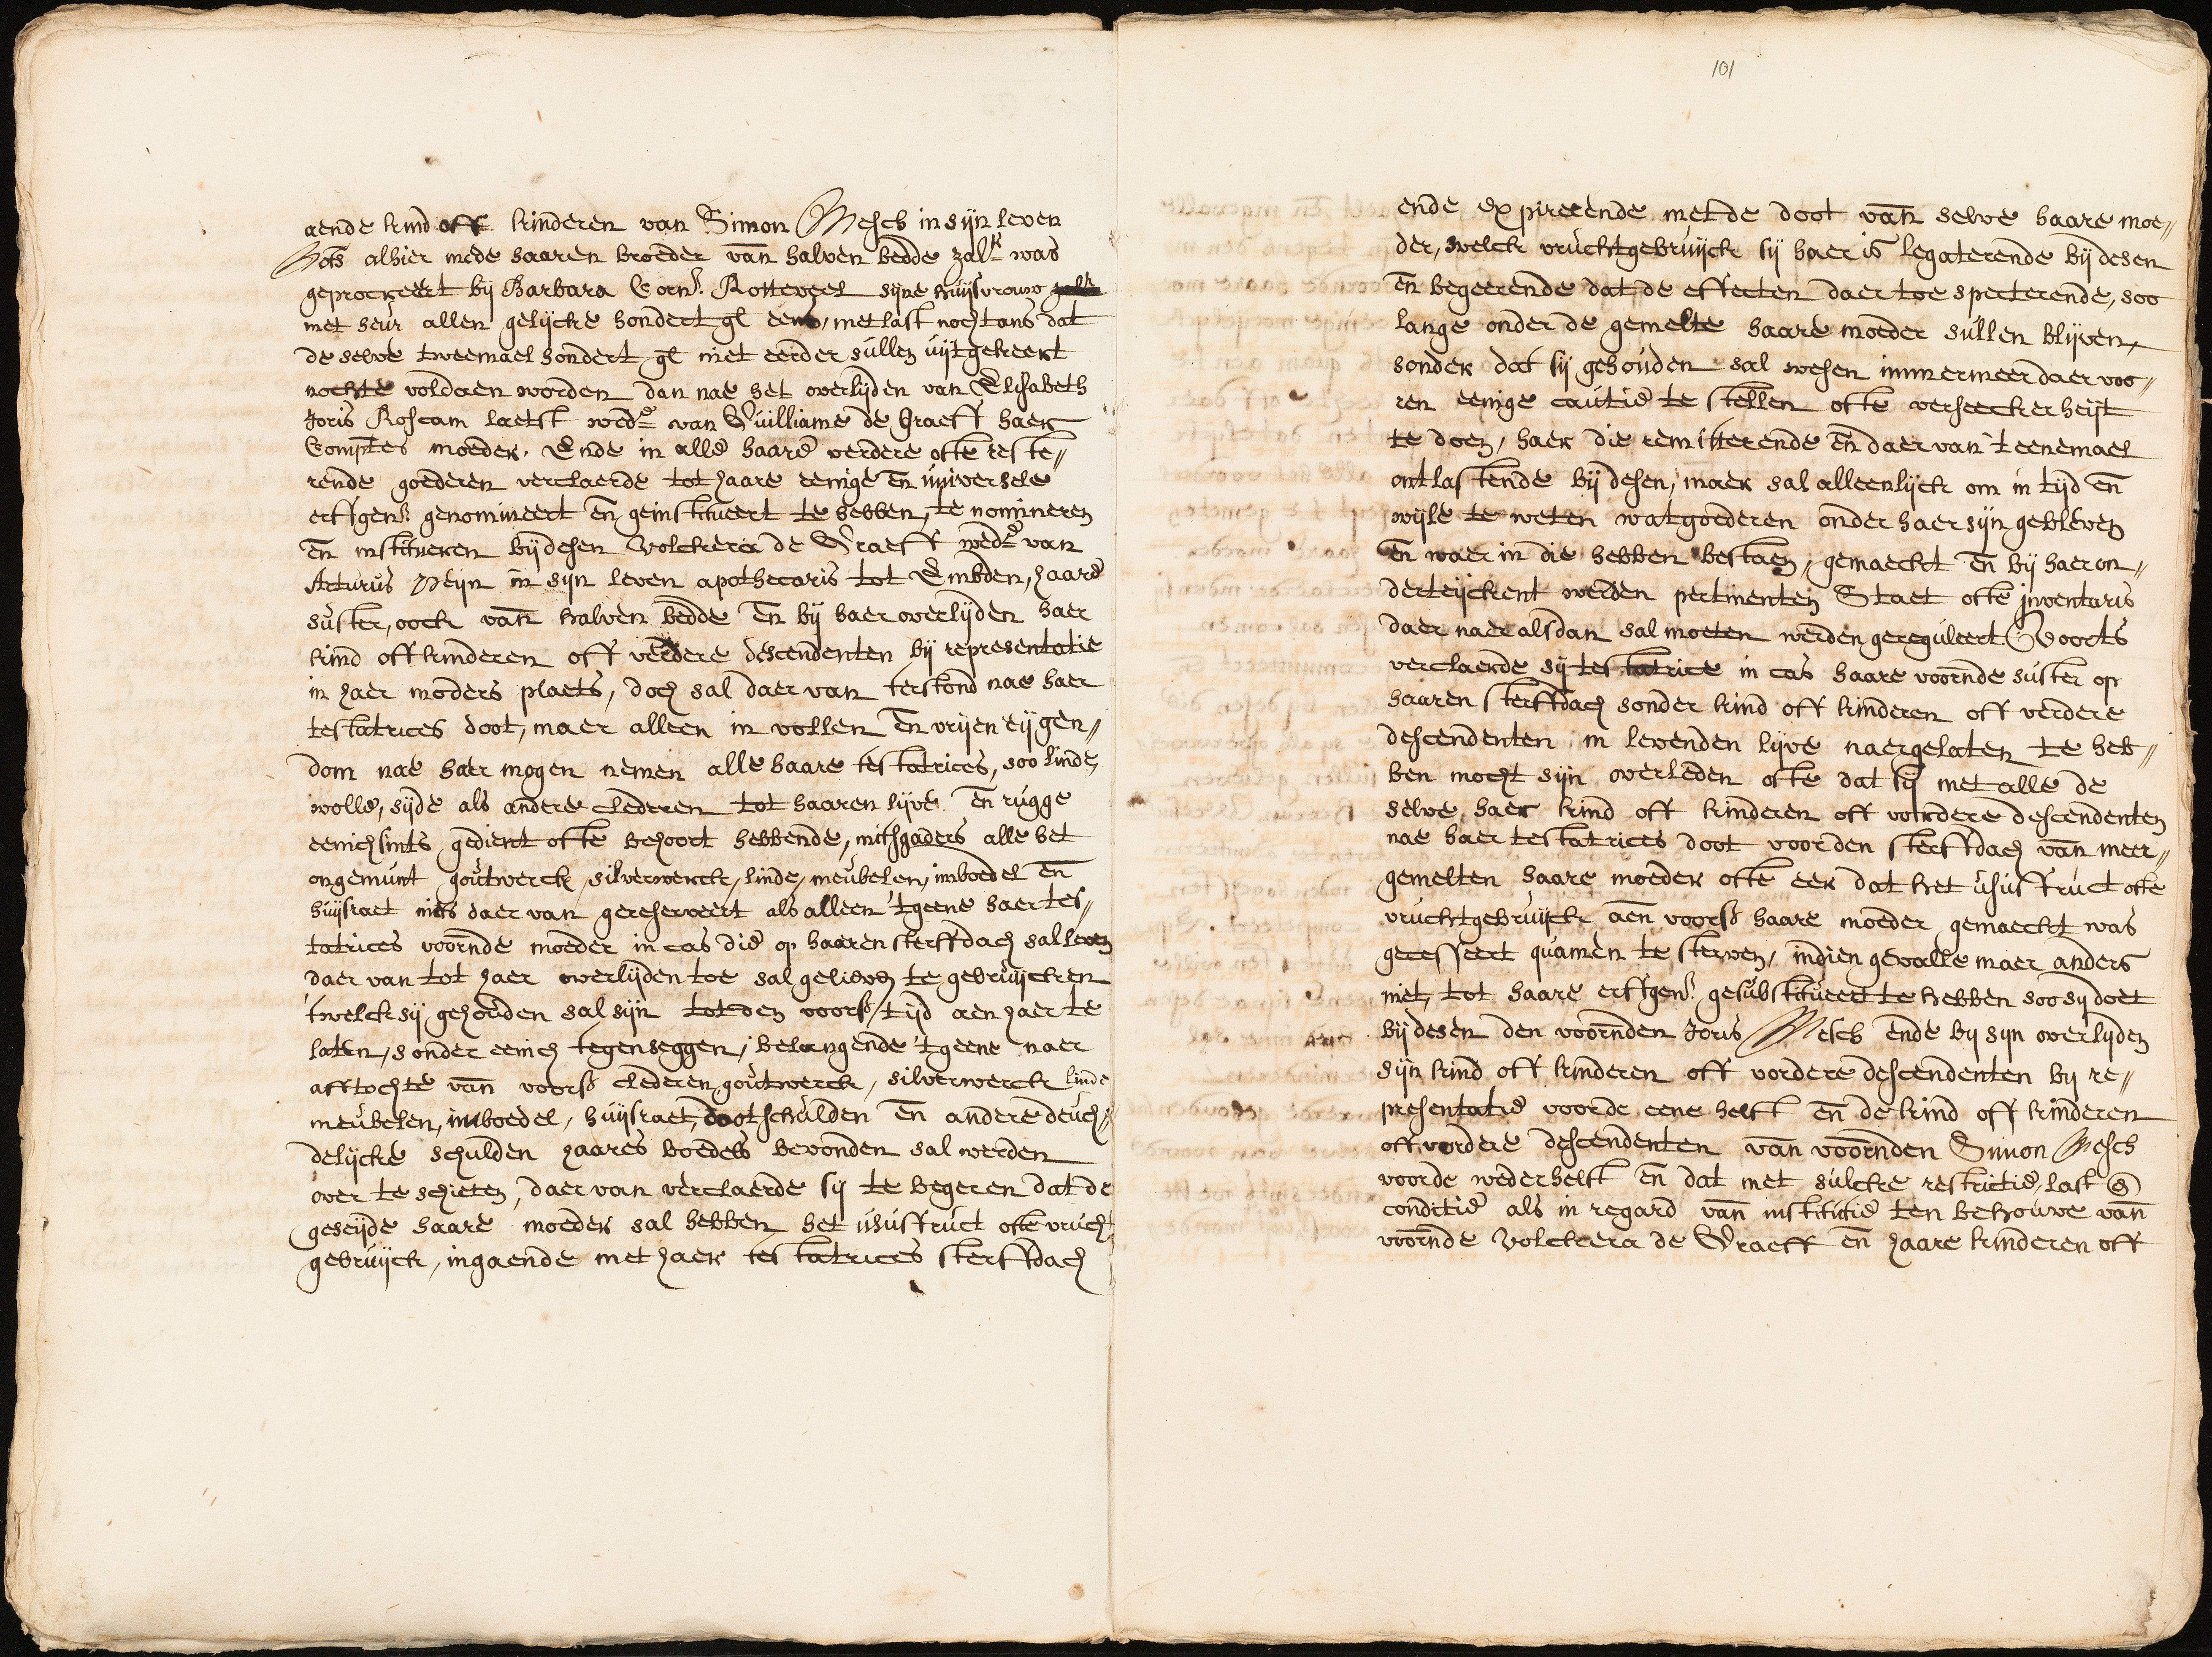 aende kind off kinderen van Simon Mesch in sijn leven
Nots alhier mede haaren broeder van halven bedde zalr was
geprocreert bij Barbara Corns. Rotteveel sijne huijsvrouw
met heur allen gelijcke hondert gl eens, met last nochtans dat
de selve tweemael hondert gl niet eerder sullen uijtgekeert
nochte voldaen worden dan nae het overlijden van Elisabeth
Joris Roscam laetst wede van Guilliame de Graeff haer
Comptes moeder. Ende in alle haare verdere ofte reste„
rende goederen verclaerde tot haare eenige en universele
erffgens genomineert en geinstitueert te hebben, te nomineren
en institueren bij desen Volckera de Graeff wede van
Arturus Pijn in sijn leven apothecaris tot Embden, haare
suster, oock van halven bedde en bij haer overlijden haer
kind off kinderen off verdere descendenten bij representatie
in haer moders plaets, doch sal daer van terstond nae haer
testatrices doot, maer alleen in vollen en vrijen eijgen„
dom nae haer mogen nemen alle haare testatrices, soo linde,
wolle, sijde als andere clederen tot haaren lijve en rugge
eenichsints gedient ofte behoort hebbende, mitsgaders alle het
ongemunt goutwerck, silverwerck, linde, meubelen, imboedel en
huijsraet niets daer van gereserveert als alleen 'tgeene haer tes„
tatrices voornde moeder in cas die op haaren sterffdach sal leven
daer van tot haer overlijden toe sal gelieven te gebruijcken
'twelck sij gehouden sal sijn tot den voors. tijd aen haer te
laten, sonder eenich tegenseggen, belangende 'tgeene naer
afftochte van voors clederen, goutwerck, silverwerck linde
meubelen, imboedel, huijsraet, dootschulden en andere deuch„
delijcke schulden haares boedels bevonden sal werden
over te schieten, daer van verclaerde sij te begeren dat de
geseijde haare moeder sal hebben het usufruct ofte vrucht
gebruijck, ingaende met haer testatrices sterffdach
101
ende expirerende met de doot van selve haare moe„
der, welck vruchtgebruijck sij haer is legaterende bij desen
en begeerende dat de effecten daer toe specterende, soo
lange onder de gemelte haare moeder sullen blijven,
sonder dat sij gehouden sal wesen immermeer daer voo„
ren eenige cautie te stellen ofte verseeckerheijt
te doen, haer die remitterende en daer van 't eenemael
ontlastende bij desen, maer sal alleenlijck om in tijd en
wijle te weten wat goederen onder haer sijn gebleven
en waer in die hebben bestaen, gemaeckt en bij haer on„
derteijckent werden pertinenten Staet ofte jnventaris
daer naer alsdan sal moeten werden gereguleert Voorts
verclaerde sij testatrice in cas haare voornde suster op
haaren sterffdach sonder kind off kinderen off verdere
descendenten in levenden lijve naergelaten te heb„
ben mocht sijn overleden ofte dat sij met alle de
selve haer kind off kinderen off vordere descendenten
nae haer testatrices doot voor den sterffdach van meer„
gemelten haare moeder ofte eer dat het usufruct ofte
vruchtgebruijck aen voors haare moeder gemaeckt was
gecesseert quamen te sterven, indien gevalle maer anders
niet, tot haare erffgens gesubstitueert te hebben soo sij doet
bij desen den voornden Joris Mesch ende bij sijn overlijden
sijn kind off kinderen off vordere descendenten bij re„
presentatie voor de eene helft en de kind off kinderen
off vordere descendenten van voornden Simon Mesch
voor de wederhelft en dat met sulcke restrictie, last en
conditie als in regard van institutie ten behouve van
voornde Volckera de Graeff en haare kinderen off